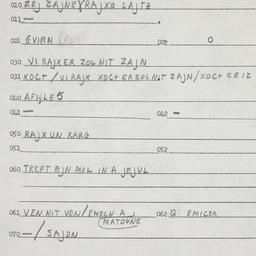 010 ZEJ ZAJNEN RAJXE LAJTE
011 —
021 GVIRN
022 0
030 VI RAJX ER ZOL NIT ZAJN
031 XOCT / VI RAJX XOCT ER ZOL NIT ZAJN / XOCT ER IZ
040 AFILE 5
041 —
042 —
050 RAJX UN KARG
051
052
060 TREFT AJN MOL IN A JEJVL
061 VEN NIT VEN / EMECN A MATOVNE
062 Q EMICER
070 — / SAJDN